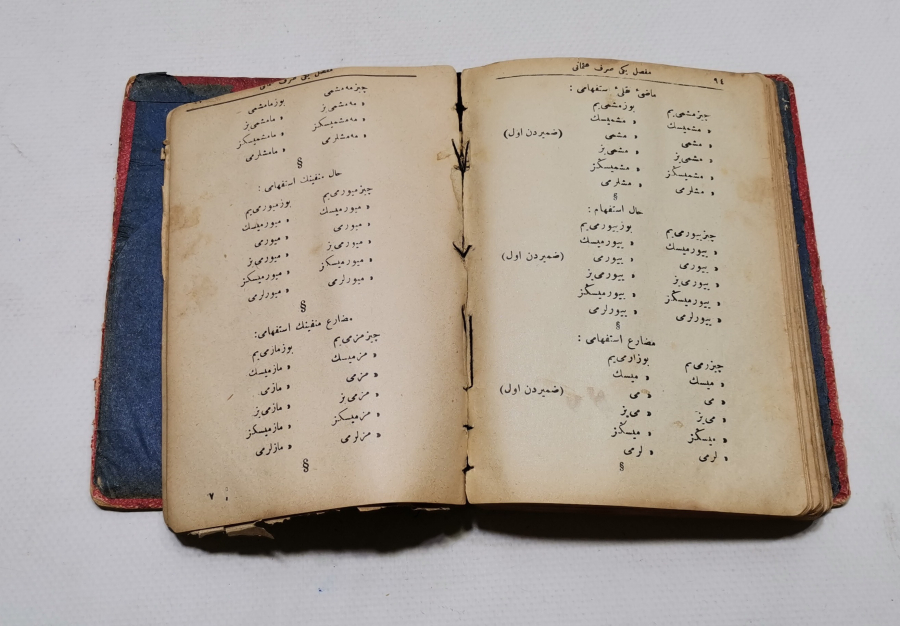 ٩٤ مفصل یکی صرف عثمانی
ماضیٔ نقلیٔ استفهامی :
چیزمشمی‌یم بوزمشمی‌یم
« مشمیسك « مشمیسك
« مشمی « مشمی (ضمیردن اول)
« مشمی‌یز « مشمی‌یز
« مشمیسکز « مشمیسڭز
« مشلرمی « مشلرمی
§
حال استفهام :
چیزییورمی‌یم بوزییورمی‌یم
« ییورمیسك « ییورمیسك
« ییورمی « ییورمی (ضمیردن اول)
« ییورمی‌یز « ییورمی‌یز
« ییورمیسڭز « ییورمیسڭز
« ییورلرمی « ییورلرمی
§
مضارع استفهامی :
چیزرمی‌یم بوزارمی‌یم
« میسك « میسك
« می « می (ضمیردن اول)
« می‌یز « می‌یز
« میسڭز « میسڭز
« لرمی « لرمی
§
مفصل یکی صرف
چیزمه‌مشمی بوزمامشمی
« مه‌مشمی‌یز « مامشمی‌یز
« مه‌مشمیسکز « مامشمیسکز
« مه‌مشلرمی « مامشلرمی
§
حال منفینك استفهامی :
چیزمیورمی‌یم بوزمیورمی‌یم
« میورمیسك « میورمیسك
« میورمی « میورمی
« میورمی‌یز « میورمی‌یز
« میورمیسکز « میورمیسکز
« میورلرمی « میورلرمی
§
مضارع منفینك استفهامی:
چیزمزمی‌یم بوزمازمی‌یم
« مزمیسك « مازمیسك
« مزمی « مازمی
« مزمی‌یز « مازمی‌یز
« مزمیسکز « مازمیسکز
« مزلرمی « مازلرمی
§
٧